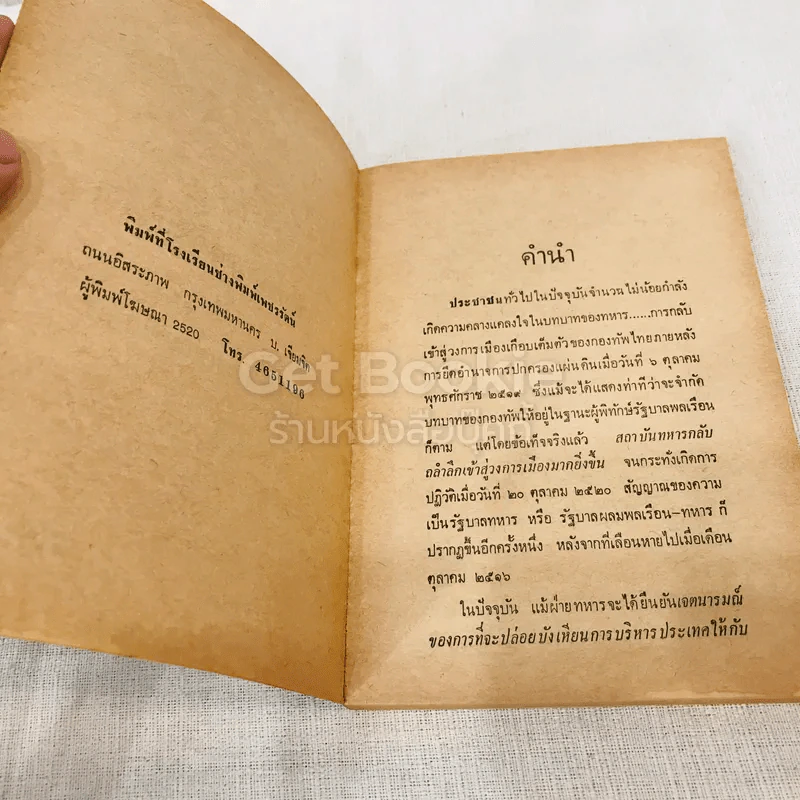 พิมพ์ที่โรงเรียนช่างพิมพ์เพชรรัตน์
ถนนอิสระภาพ กรุงเทพมหานคร บ. เจียมจิต
ผู้พิมพ์โฆษณา 2520 โทร. 4651196
คำนำ
ประชาชนทั่วไปในปัจจุบันจำนวนไม่น้อยกำลัง
เกิดความคลางแคลงใจในบทบาทของทหาร......การกลับ
เข้าสู่วงการเมืองเกือบเต็มตัวของกองทัพไทยภายหลัง
การยึดอำนาจการปกครองแผ่นดินเมื่อวันที่ ๖ ตุลาคม
พุทธศักราช ๒๕๑๙ ซึ่งแม้จะได้แสดงท่าทีว่าจะจำกัด
บทบาทของกองทัพให้อยู่ในฐานะผู้พิทักษ์รัฐบาลพลเรือน
ก็ตาม แต่โดยข้อเท็จจริงแล้ว สถาบันทหารกลับ
ถลำลึกเข้าสู่วงการเมืองมากยิ่งขึ้น จนกระทั่งเกิดการ
ปฏิวัติเมื่อวันที่ ๒๐ ตุลาคม ๒๕๒๐ สัญญาณของความ
เป็นรัฐบาลทหาร หรือ รัฐบาลผสมพลเรือน–ทหาร ก็
ปรากฏขึ้นอีกครั้งหนึ่ง หลังจากที่เลือนหายไปเมื่อเดือน
ตุลาคม ๒๕๑๖
ในปัจจุบัน แม้ฝ่ายทหารจะได้ยืนยันเจตนารมณ์
ของการที่จะปล่อยบังเหียนการบริหารประเทศให้กับ
Get Bookie
ร้านหนังสือบุ๊คกี้